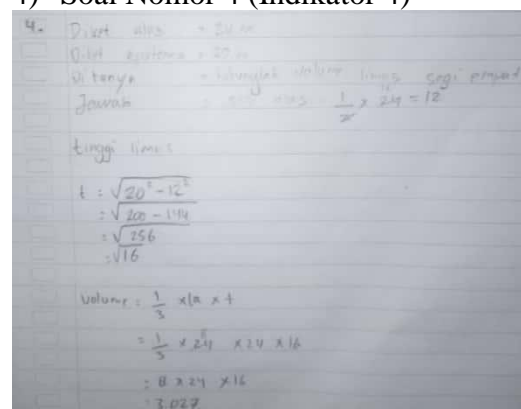 4) Soal Nomor 4 (Indikator 4)
4. Diket alas = 24 m
Diket apotema = 20 m
Ditanya = hitunglah volume limas segi empat
Jawab = 1/2 alas = 1/2 x 24 = 12
tinggi limas
t = √20² - 12²
= √200 - 144
= √256
= √16
Volume = 1/3 x la x t
= 1/3 x 24 x 24 x 16
= 8 x 24 x 16
= 3.027